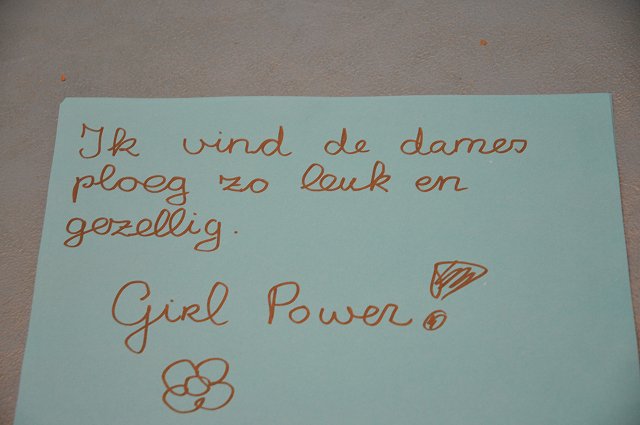 Ik vind de dames
ploeg zo leuk en
gezellig.
Girl Power!